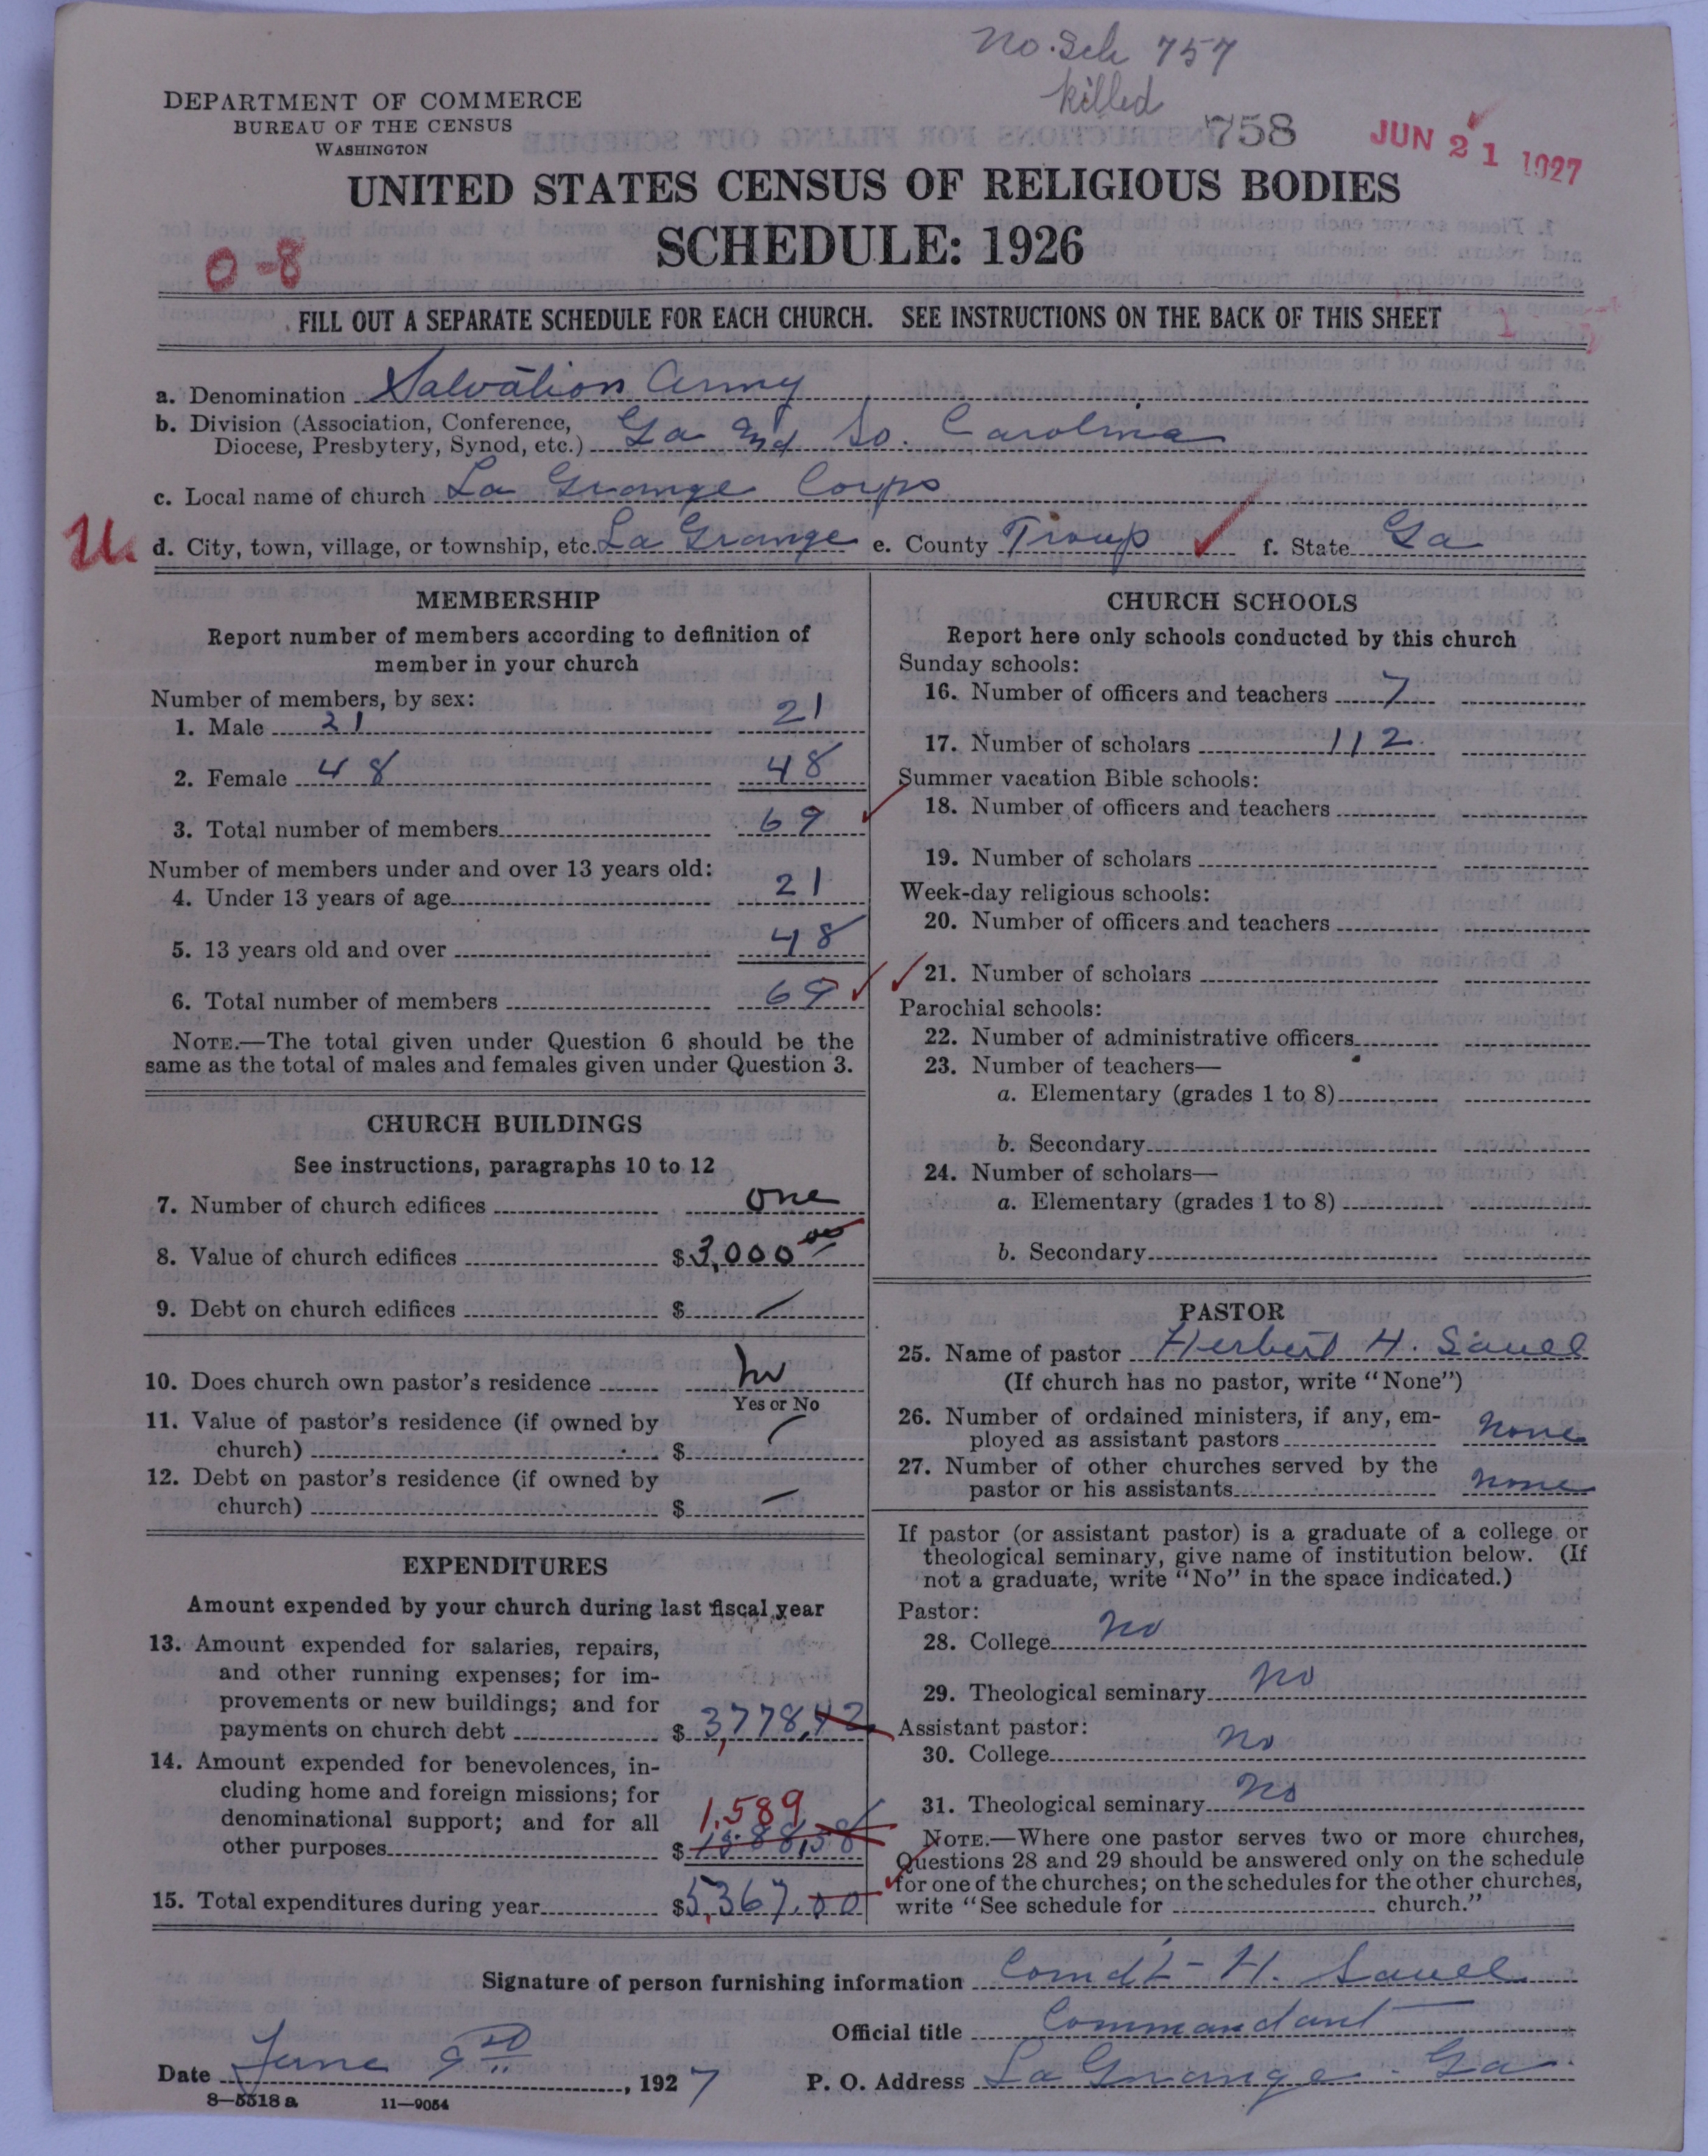 No. Sch 757
killed
758
JUN 21 1927
DEPARTMENT OF COMMERCE
BUREAU OF THE CENSUS
WASHINGTON
UNITED STATES CENSUS OF RELIGIOUS BODIES
SCHEDULE: 1926
0-8
FILL OUT A SEPARATE SCHEDULE FOR EACH CHURCH. SEE INSTRUCTIONS ON THE BACK OF THIS SHEET
a. Denomination Salvation Army
b. Division (Association, Conference,
Diocese, Presbytery, Synod, etc.) Ga and So. Carolina
c. Local name of church La Grange Corps
U. d. City, town, village, or township, etc. La Grange e. County Troup f. State Ga
MEMBERSHIP
Report number of members according to definition of
member in your church
Number of members, by sex:
1. Male 21 21
2. Female 48 48
3. Total number of members 69
Number of members under and over 13 years old:
4. Under 13 years of age 21
5. 13 years old and over 48
6. Total number of members 69
NOTE.—The total given under Question 6 should be the
same as the total of males and females given under Question 3.
CHURCH BUILDINGS
See instructions, paragraphs 10 to 12
7. Number of church edifices one
8. Value of church edifices $3,000 00
9. Debt on church edifices $ —
10. Does church own pastor's residence No
Yes or No
11. Value of pastor's residence (if owned by
church) $ —
12. Debt on pastor's residence (if owned by
church) $ —
EXPENDITURES
Amount expended by your church during last fiscal year
13. Amount expended for salaries, repairs,
and other running expenses; for im-
provements or new buildings; and for
payments on church debt $ 3,778.42
14. Amount expended for benevolences, in-
cluding home and foreign missions; for
denominational support; and for all 1,589
other purposes $ 1588.58
15. Total expenditures during year $5,367.00
CHURCH SCHOOLS
Report here only schools conducted by this church
Sunday schools:
16. Number of officers and teachers 7
17. Number of scholars 112
Summer vacation Bible schools:
18. Number of officers and teachers
19. Number of scholars
Week-day religious schools:
20. Number of officers and teachers
21. Number of scholars
Parochial schools:
22. Number of administrative officers
23. Number of teachers—
a. Elementary (grades 1 to 8)
b. Secondary
24. Number of scholars—
a. Elementary (grades 1 to 8)
b. Secondary
PASTOR
25. Name of pastor Herbert H. Sauell
(If church has no pastor, write "None")
26. Number of ordained ministers, if any, em-
ployed as assistant pastors None
27. Number of other churches served by the
pastor or his assistants None
If pastor (or assistant pastor) is a graduate of a college or
theological seminary, give name of institution below. (If
not a graduate, write "No" in the space indicated.)
Pastor:
28. College No
29. Theological seminary No
Assistant pastor:
30. College No
31. Theological seminary No
NOTE.—Where one pastor serves two or more churches,
Questions 28 and 29 should be answered only on the schedule
for one of the churches; on the schedules for the other churches,
write "See schedule for church."
Signature of person furnishing information Comdt- H. Sauell
Official title Commandant
Date June 9th, 1927 P. O. Address La Grange. Ga.
8—5518 a 11—9054